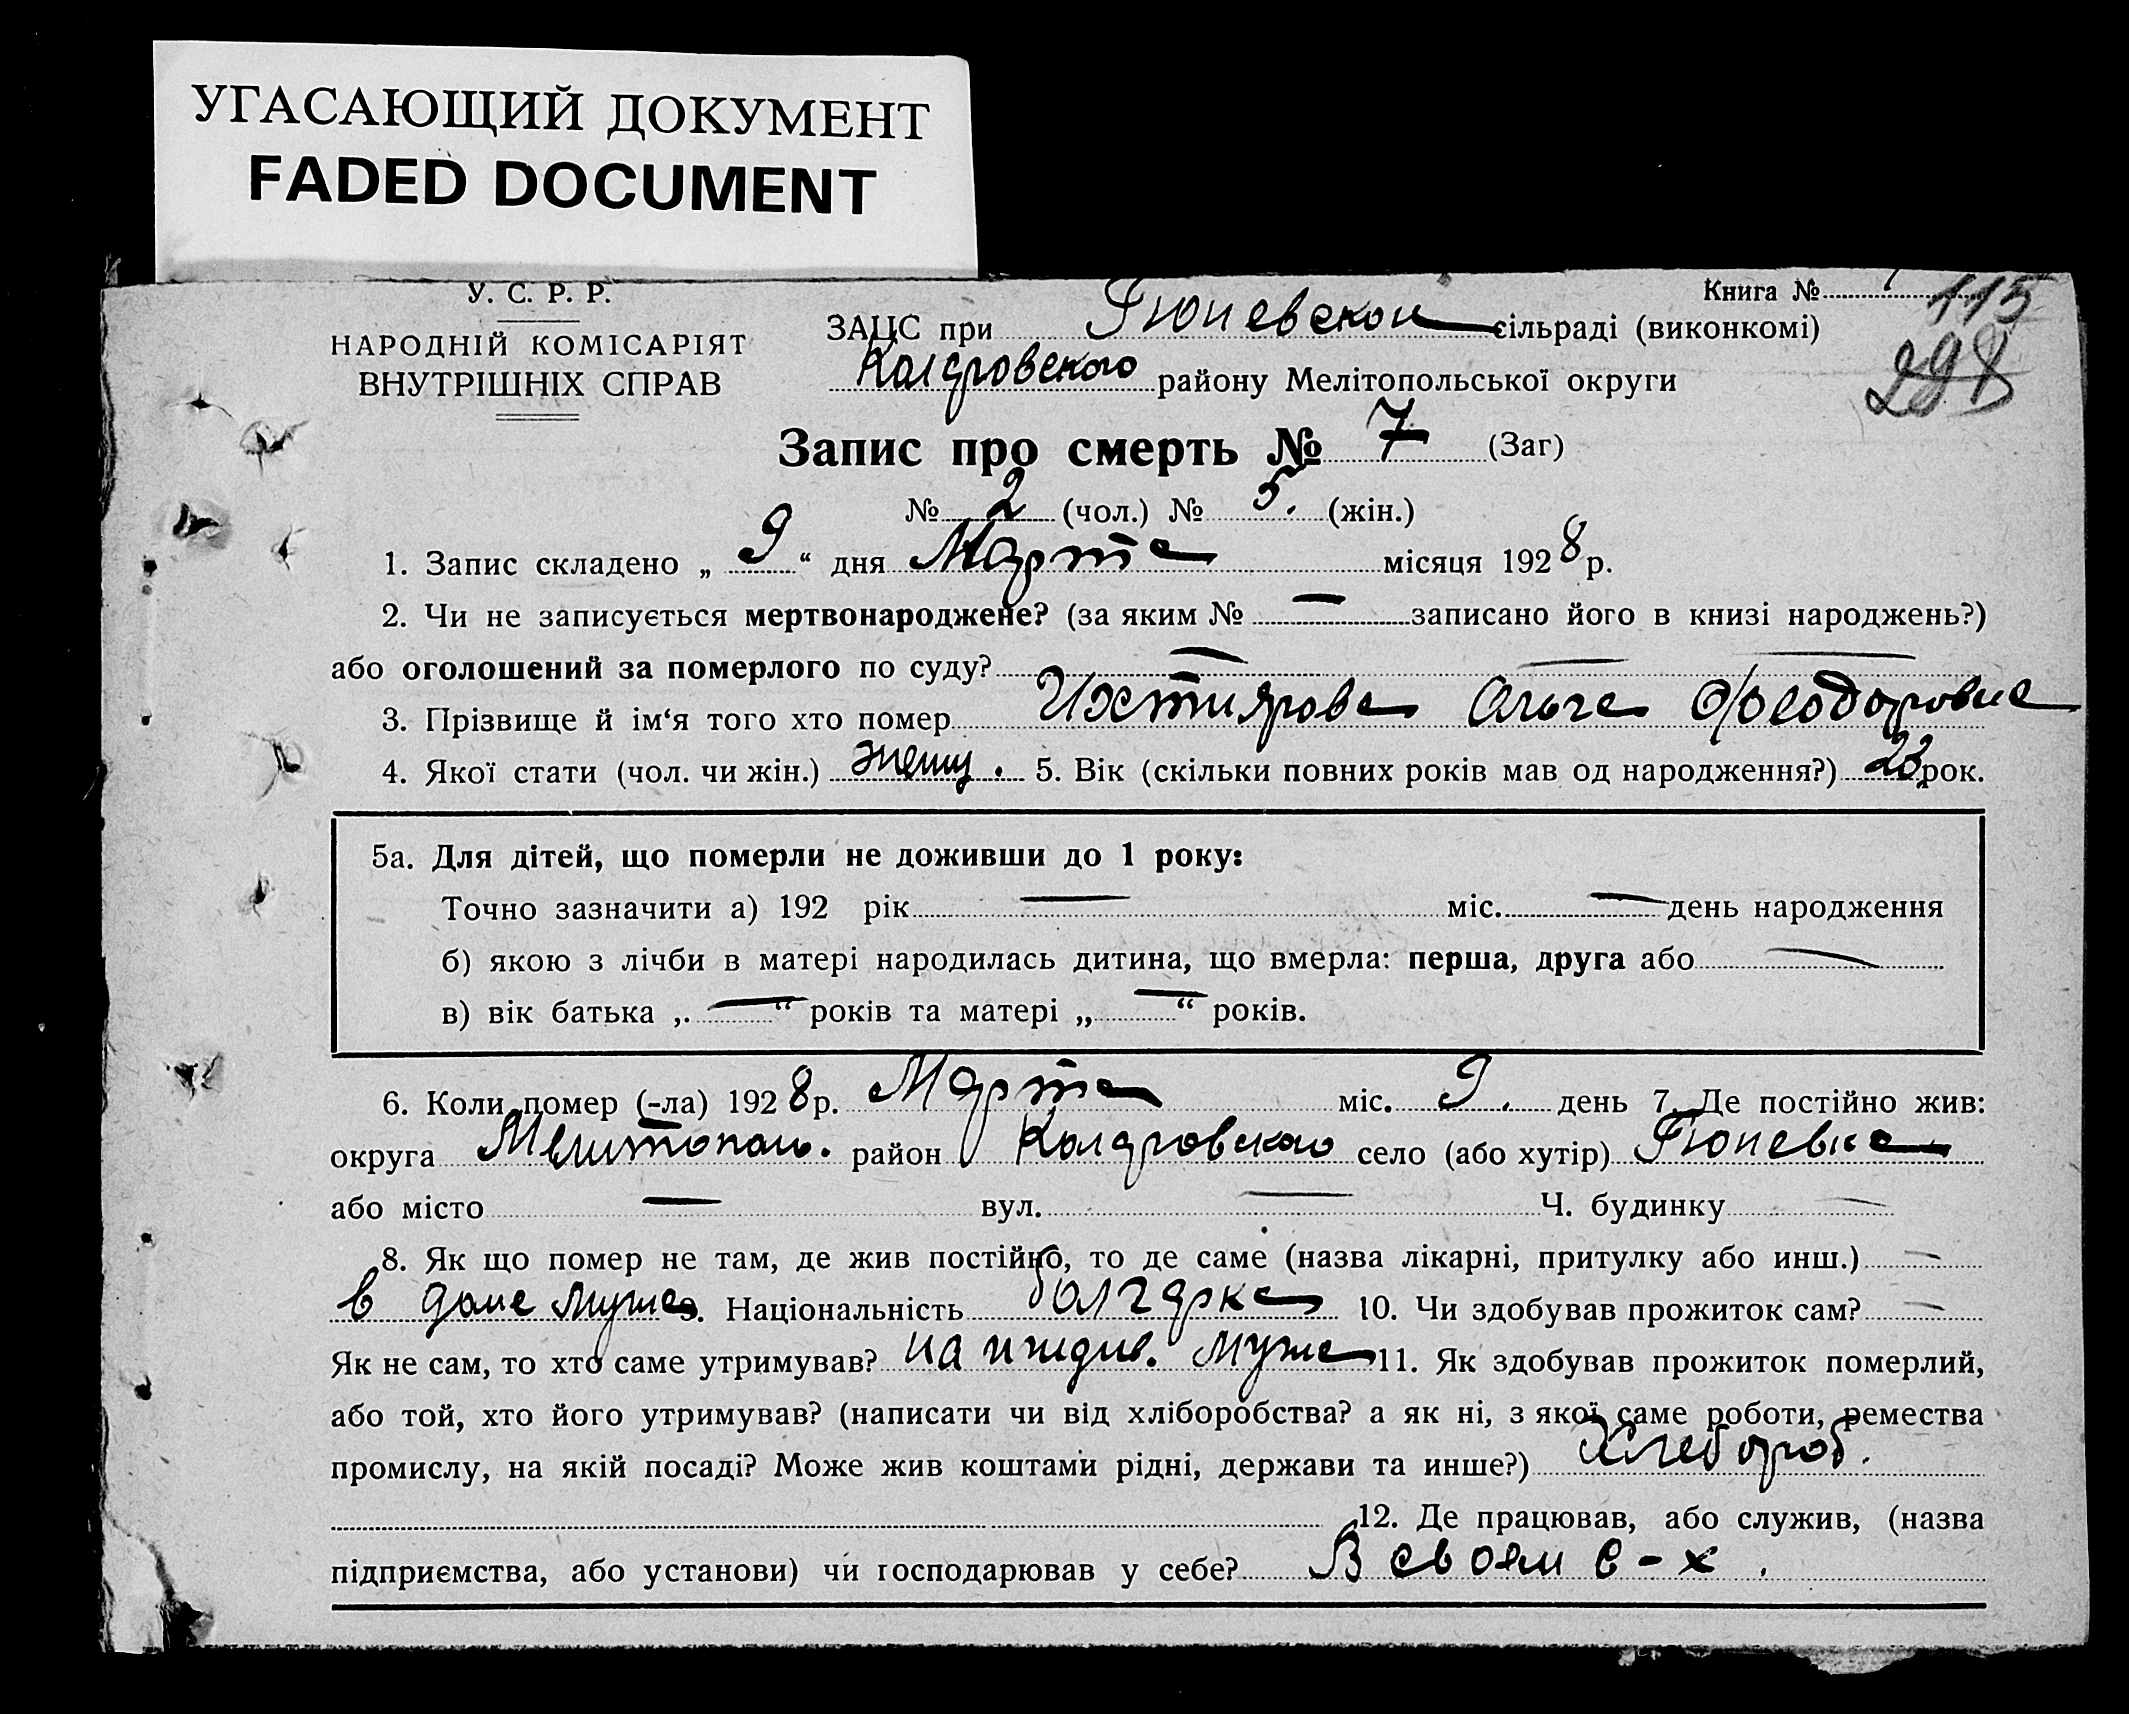 УГАСАЮЩИЙ ДОКУМЕНТ
FADED DOCUMENT
У. С. Р. Р.
НАРОДНІЙ КОМІСАРІЯТ
ВНУТРІШНІХ СПРАВ
Книга №
115
298
ЗАЦС при Гюневской сільраді (виконкомі)
Коларовского району Мелітопольської округи
Запис про смерть № 7 (Заг)
№ 2 (чол.) № 5. (жін.)
1. Запис складено „ 9 “ дня Марта місяця 1928 р.
2. Чи не записується мертвонароджене? (за яким № — записано його в книзі народжень?)
або оголошений за померлого по суду? —
3. Прізвище й ім‘я того хто помер Ихтиярова Ольга Феодоровна
4. Якої стати (чол. чи жін.) женщ. 5. Вік (скільки повних років мав од народження?) 23 рок.
5а. Для дітей, що померли не доживши до 1 року:
Точно зазначити а) 192 рік — міс. — день народження
б) якою з лічби в матері народилась дитина, що вмерла: перша, друга або —
в) вік батька „ — “ років та матері „ — “ років.
6. Коли помер (-ла) 1928 р. Марта міс. 9. день 7. Де постійно жив:
округа Мелитополь. район Коларовского село (або хутір) Гюневка
або місто — вул. — Ч. будинку —
8. Як що помер не там, де жив постійно, то де саме (назва лікарні, притулку або инш.) —
в доме мужа 9. Національність болгарка 10. Чи здобував прожиток сам? —
Як не сам, то хто саме утримував? на иждив. мужа 11. Як здобував прожиток померлий,
або той, хто його утримував? (написати чи від хліборобства? а як ні, з якої саме роботи, ремества
промислу, на якій посаді? Може жив коштами рідні, держави та инше?) Хлебороб.
12. Де працював, або служив, (назва
підприємства, або установи) чи господарював у себе? В своем с-х.